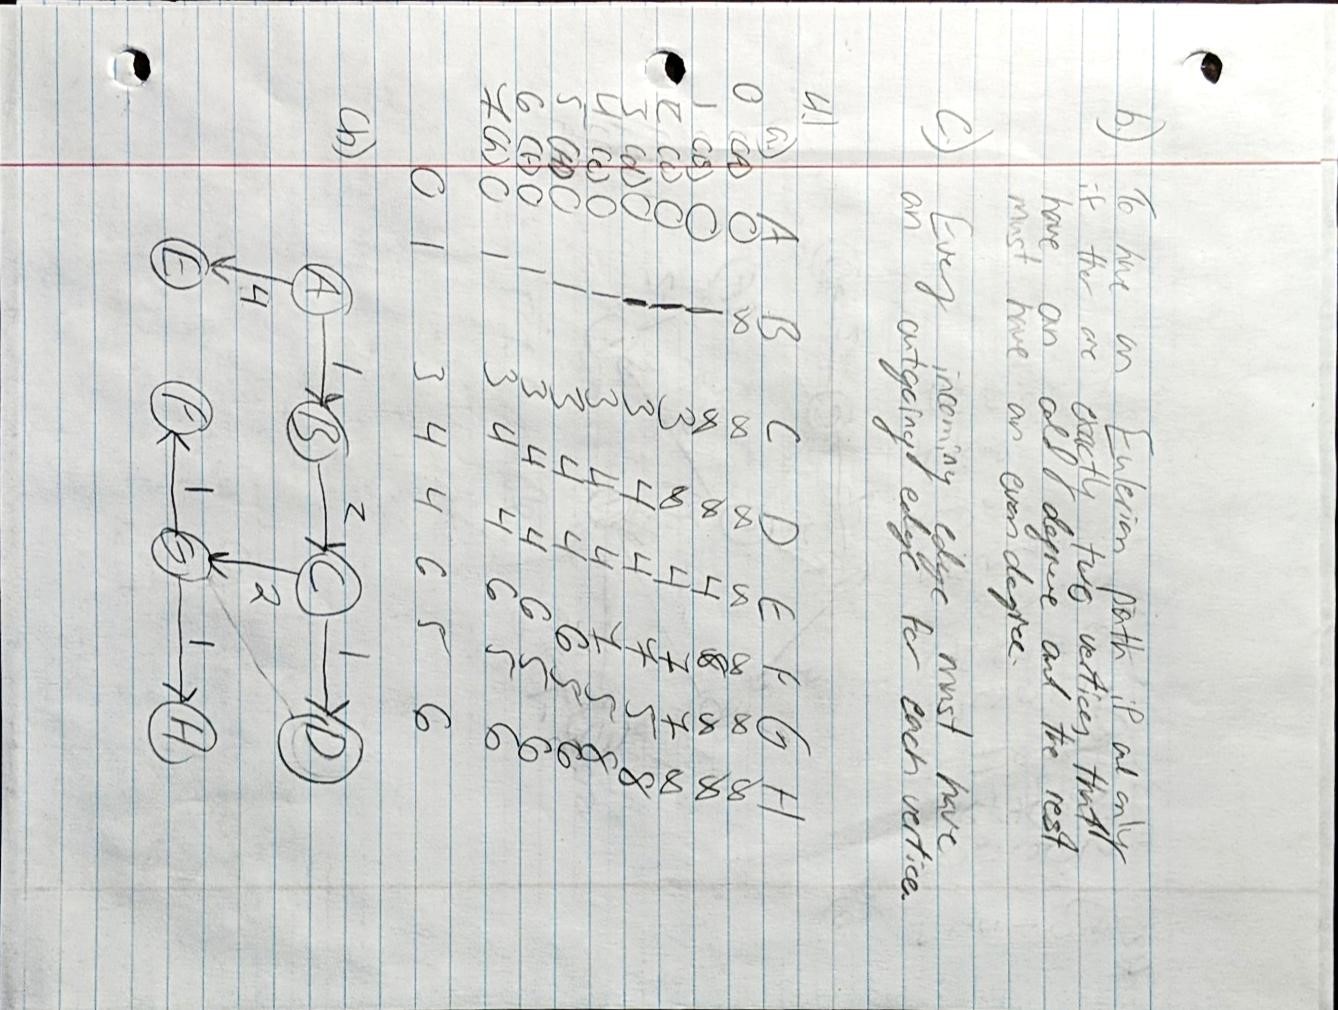 b) To have an Eulerian path if and only
if ther are exactly two vertices that
have an odd degree and the rest
must have an even degree.
c.) Every incoming edge must have
an outgoing edge for each vertice.
4.)
a) A B C D E F G H
0 (A) 0 ∞ ∞ ∞ ∞ ∞ ∞ ∞
1 (B) 0 1 ∞ ∞ 4 ∞ ∞ ∞
2 (C) 0 1 3 ∞ 4 7 7 ∞
3 0 1 3 4 4 7 5 8
4 0 1 3 4 4 7 5 8
5 0 1 3 4 4 6 5 6
6 0 1 3 4 4 6 5 6
7 0 1 3 4 4 6 5 6
0 1 3 4 4 6 5 6
(b) A 1 B 2 C 1 D
4 2
E F 1 G 1 H